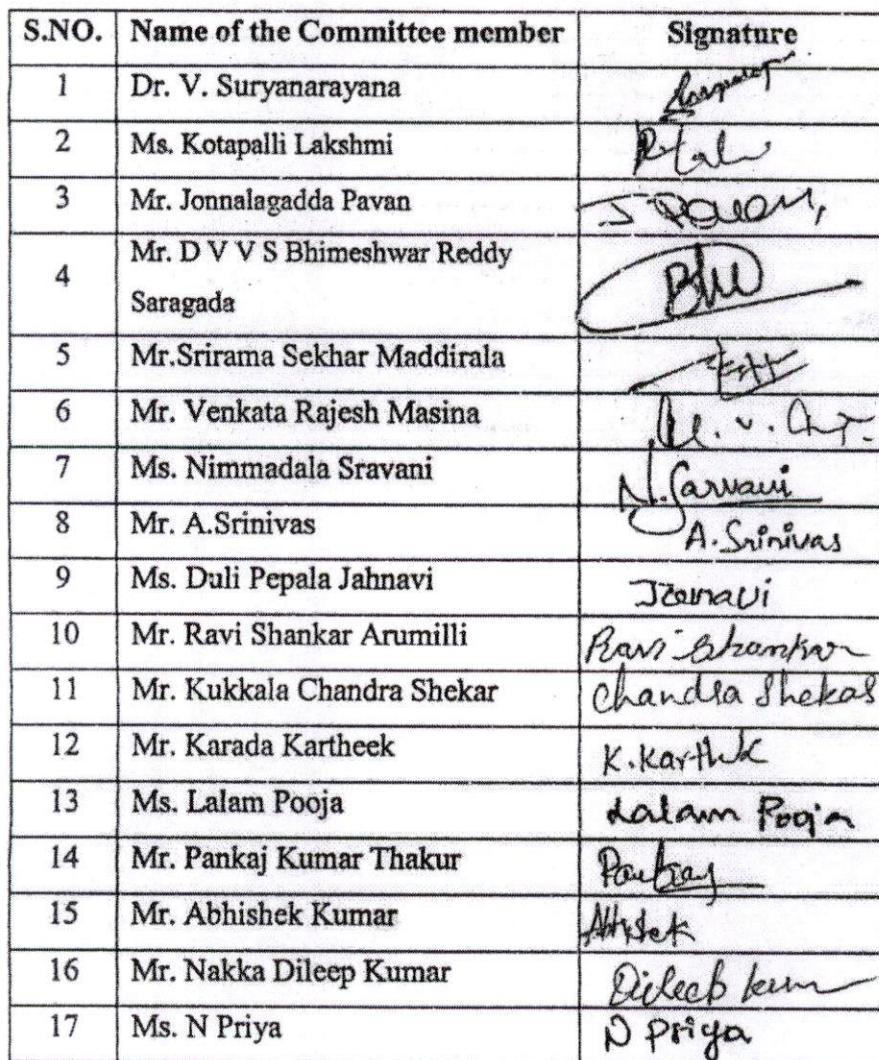 S.NO. Name of the Committee member Signature
1 Dr. V. Suryanarayana
2 Ms. Kotapalli Lakshmi
3 Mr. Jonnalagadda Pavan J Pavan,
4 Mr. D V V S Bhimeshwar Reddy
Saragada
5 Mr.Srirama Sekhar Maddirala
6 Mr. Venkata Rajesh Masina
7 Ms. Nimmadala Sravani N. Sarvani
8 Mr. A.Srinivas A. Srinivas
9 Ms. Duli Pepala Jahnavi
10 Mr. Ravi Shankar Arumilli Ravi Shankar
11 Mr. Kukkala Chandra Shekar Chandra Shekar
12 Mr. Karada Kartheek K. Karthik
13 Ms. Lalam Pooja Lalam Pooja
14 Mr. Pankaj Kumar Thakur Pankaj
15 Mr. Abhishek Kumar
16 Mr. Nakka Dileep Kumar
17 Ms. N Priya N Priya